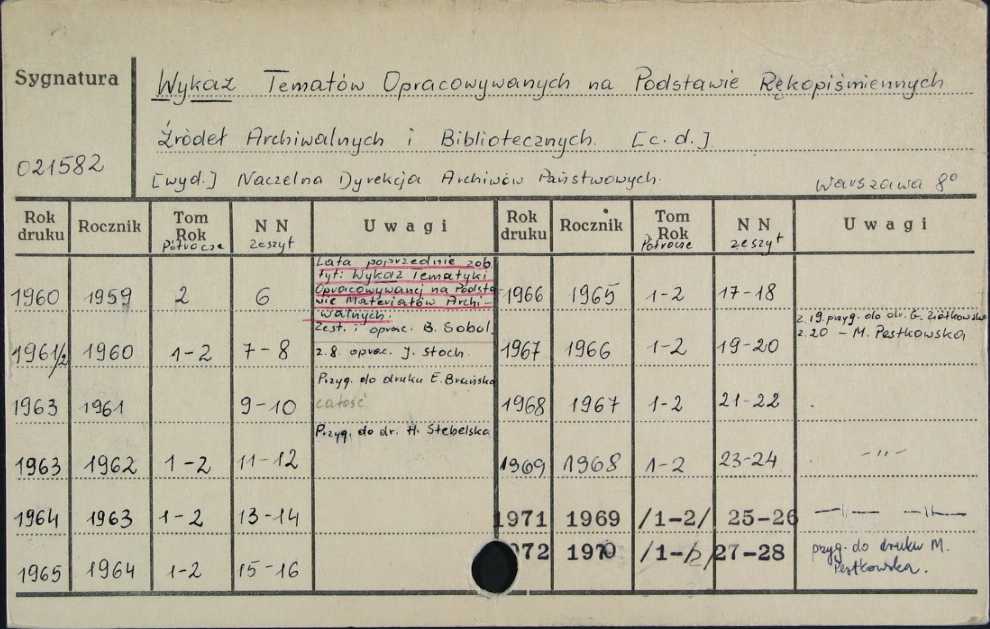 Sygnatura
Wykaz Tematów Opracowywanych na Podstawie Rękopiśmiennych
Źródeł Archiwalnych i Bibliotecznych. [c.d.]
021582
[wyd.] Naczelna Dyrekcja Archiwów Państwowych.
Warszawa 8°
Rok druku Rocznik Tom Rok Półrocze NN zeszyt Uwagi Rok druku Rocznik Tom Rok Półrocze NN zeszyt Uwagi
Lata poprzednie zob.
tyt: Wykaz Tematyki
Opracowywanej na Podsta-
wie Materiałów Archi-
walnych.
1960 1959 2 6 Zest. i oprac. B. Sobol. 1966 1965 1-2 17-18
z. 19. przyg. do dr. G. Ziółkowska
z. 20 - M. Pestkowska
1961/2 1960 1-2 7-8 z. 8. oprac. J. Stoch. 1967 1966 1-2 19-20
Przyg. do druku E. Brańska
całość
1963 1961 9-10 1968 1967 1-2 21-22
Przyg. do dr. H. Stebelska
1963 1962 1-2 11-12 1969 1968 1-2 23-24 -"-
1964 1963 1-2 13-14 1971 1969 /1-2/ 25-26 -"- -"-
1965 1964 1-2 15-16 1972 1970 /1-2/ 27-28 przyg. do druku M.
Pestkowska.